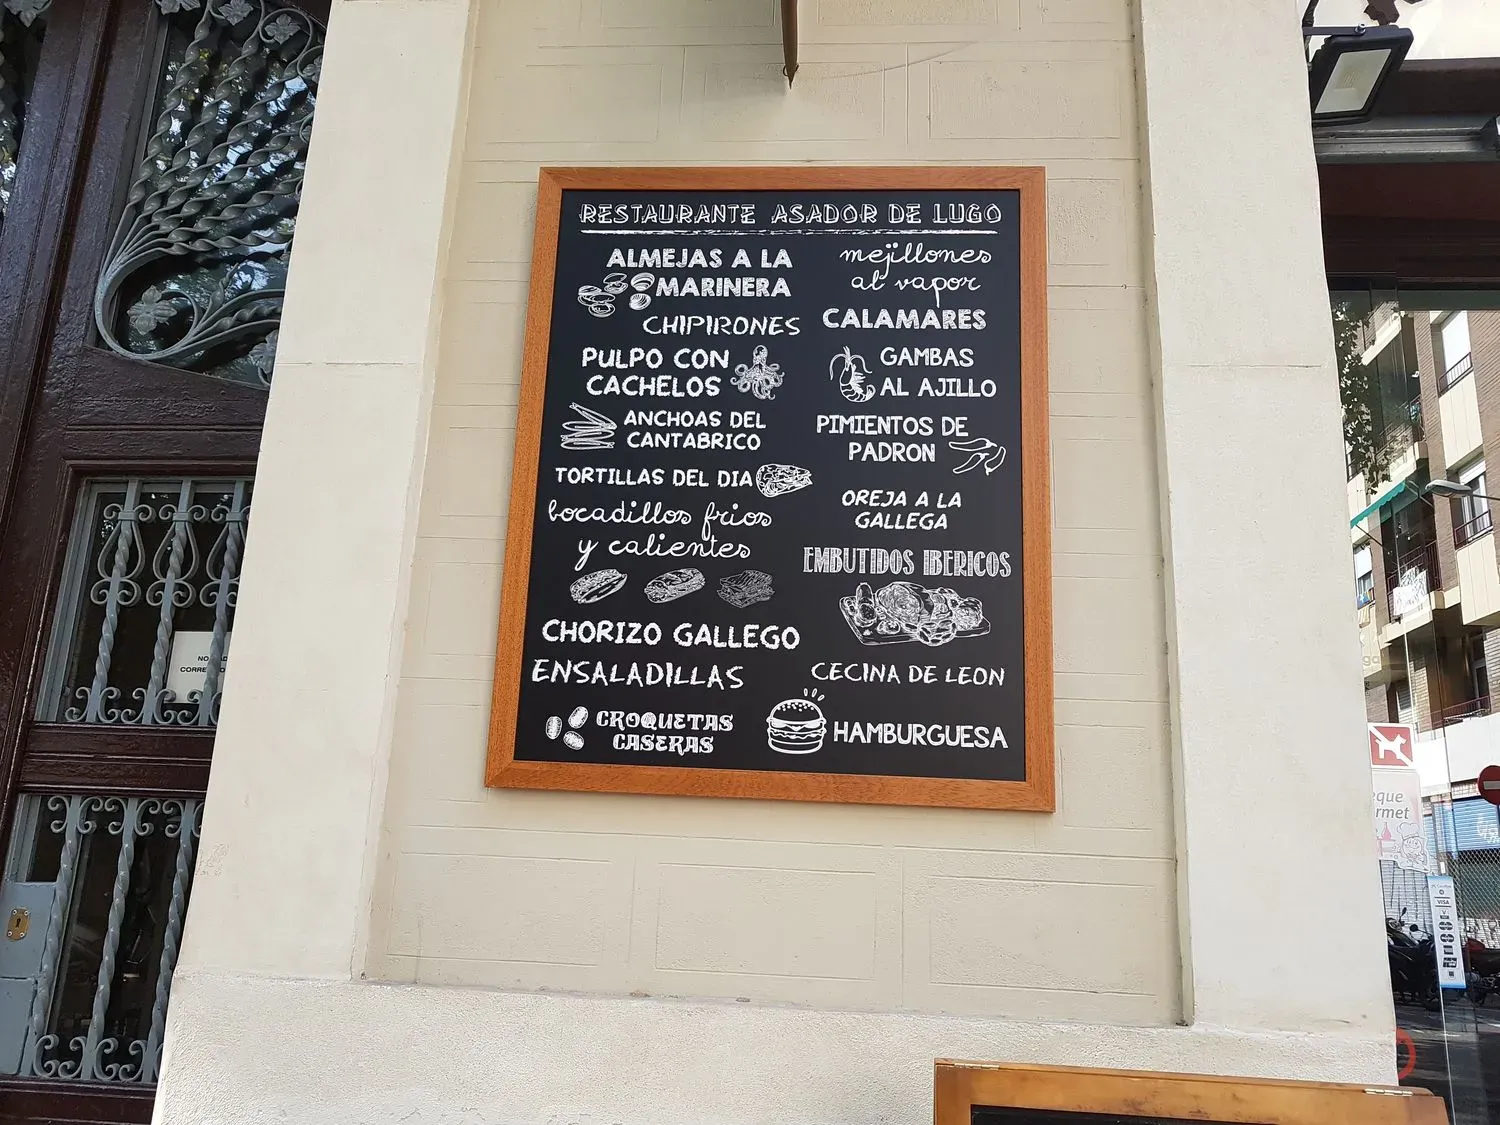 RESTAURANTE ASADOR DE LUGO
ALMEJAS A LA
MARINERA
CHIPIRONES
PULPO CON
CACHELOS
ANCHOAS DEL
CANTABRICO
TORTILLAS DEL DIA
bocadillos frios
y calientes
CHORIZO GALLEGO
ENSALADILLAS
CROQUETAS
CASERAS
mejillones
al vapor
CALAMARES
GAMBAS
AL AJILLO
PIMIENTOS DE
PADRON
OREJA A LA
GALLEGA
EMBUTIDOS IBERICOS
CECINA DE LEON
HAMBURGUESA
VISA